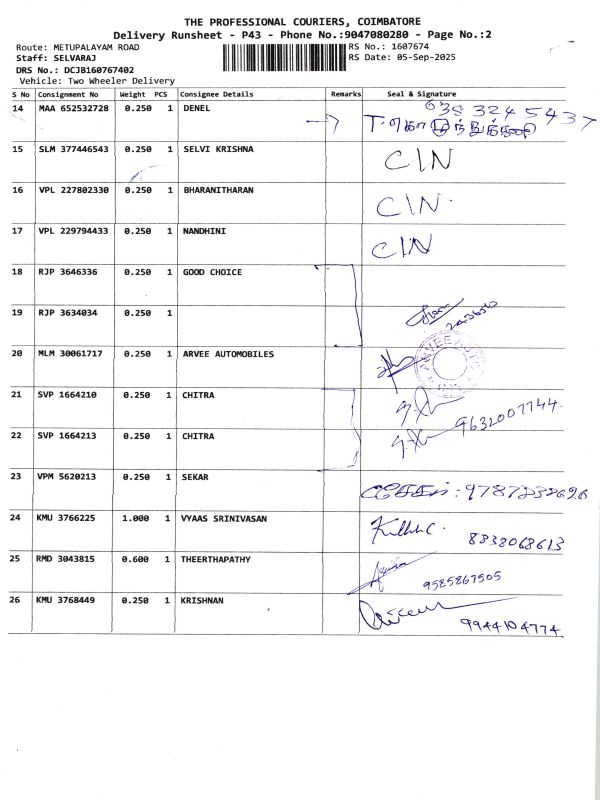 THE PROFESSIONAL COURIERS, COIMBATORE
Delivery Runsheet - P43 - Phone No.:9047080280 - Page No.:2
Route: METUPALAYAM ROAD RS No.: 1607674
Staff: SELVARAJ RS Date: 05-Sep-2025
DRS No.: DCJB160767402
Vehicle: Two Wheeler Delivery
S No Consignment No Weight PCS Consignee Details Remarks Seal & Signature
14 MAA 652532728 0.250 1 DENEL 638 3245437
15 SLM 377446543 0.250 1 SELVI KRISHNA CIN
16 VPL 227802330 0.250 1 BHARANITHARAN CIN
17 VPL 229794433 0.250 1 NANDHINI CIN
18 RJP 3646336 0.250 1 GOOD CHOICE
19 RJP 3634034 0.250 1
20 MLM 30061717 0.250 1 ARVEE AUTOMOBILES ARVEE AUTO
21 SVP 1664210 0.250 1 CHITRA
22 SVP 1664213 0.250 1 CHITRA 9632007744.
23 VPM 5620213 0.250 1 SEKAR
24 KMU 3766225 1.000 1 VYAAS SRINIVASAN 8838068613
25 RMD 3043815 0.600 1 THEERTHAPATHY 9585867505
26 KMU 3768449 0.250 1 KRISHNAN 9944104774